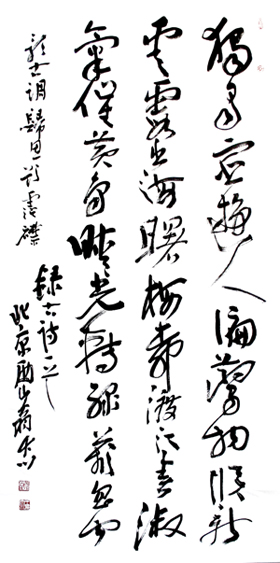 獨有宦遊人偏驚物候新
雲霞出海曙梅柳渡江春淑
氣催黃鳥晴光轉綠蘋忽聞
歌古調歸思欲霑襟
錄古詩一首
北京